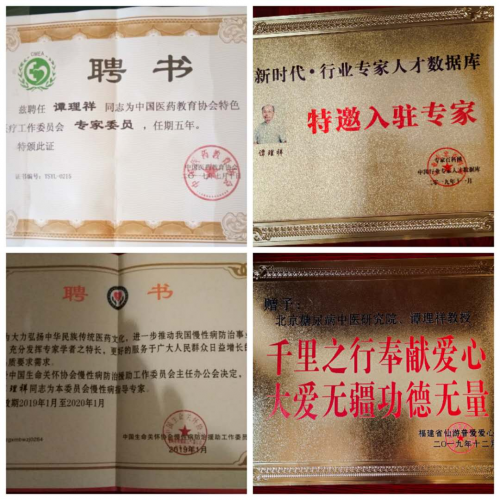 CMEA
聘 书
兹聘任 谭理祥 同志为中国医药教育协会特色
医疗工作委员会 专家委员，任期五年。
特颁此证
新时代·行业专家人才数据库
特邀入驻专家
谭理祥
中国行业专家人才数据库
二〇一九年十一月
聘 书
为大力弘扬中华民族传统医药文化，进一步推动我国慢性病防治事
充分发挥专家学者之特长，更好的服务于广大人民群众日益增长
医要求需求。
中国生命关怀协会慢性病防治援助工作委员会主任办公会决定。
理祥同志为本委员会慢性病指导专家。
期2019年1月至2020年1月
中国生命关怀协会慢性病防治援助工作委员
2019年1月
赠予：
北京糖尿病中医研究院，谭理祥教授
千里之行奉献爱心
大爱无疆功德无量
福建省仙游普爱爱心
二〇一九年十二